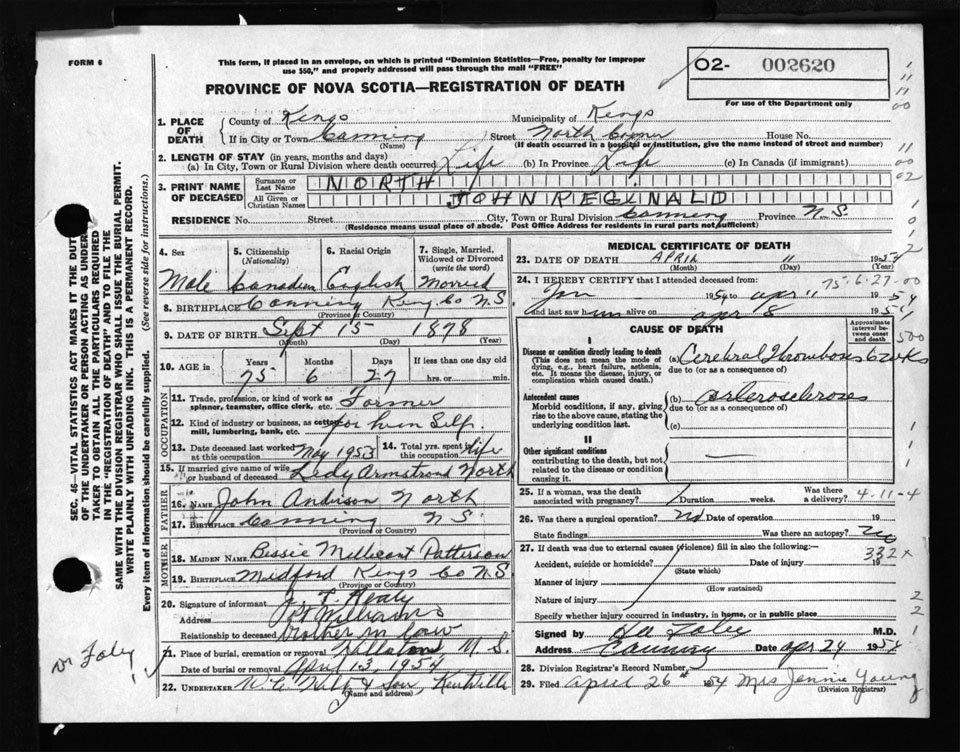 FORM 6
This form, if placed in an envelope, on which is printed "Dominion Statistics—Free, penalty for improper
use $50," and properly addressed will pass through the mail "FREE"
O2- 002620
For use of the Department only
PROVINCE OF NOVA SCOTIA—REGISTRATION OF DEATH
1. PLACE OF DEATH
County of Kings Municipality of Kings
If in City or Town Canning Street North Corner House No.
(Name) (If death occurred in a hospital or institution, give name instead of street and number)
2. LENGTH OF STAY (in years, months and days)
(a) In City, Town or Rural Division where death occurred Life (b) In Province Life (c) In Canada (if immigrant)
3. PRINT NAME OF DECEASED
Surname or Last Name NORTH
All Given or Christian Names JOHN REGINALD
RESIDENCE No. Street City, Town or Rural Division Canning Province N.S.
(Residence means usual place of abode. Post Office Address for residents in rural parts not sufficient)
4. Sex 5. Citizenship (Nationality) 6. Racial Origin 7. Single, Married, Widowed or Divorced (write the word)
Male Canadian English Married
8. BIRTHPLACE Canning Kings Co N S
(Province or Country)
9. DATE OF BIRTH Sept 15 1878
(Month) (Day) (Year)
10. AGE in Years Months Days If less than one day old
75 6 27 hrs. or min.
OCCUPATION
11. Trade, profession, or kind of work as spinner, teamster, office clerk, etc. Farmer
12. Kind of industry or business, as cotton mill, lumbering, bank, etc. for him Self
13. Date deceased last worked at this occupation May 1953 14. Total yrs. spent in this occupation life
15. If married give name of wife or husband of deceased Armstrong North
FATHER
16. Name John Anderson North
17. Birthplace Canning N S
(Province or Country)
MOTHER
18. Maiden Name Bessie Mellicent Patterson
19. Birthplace Medford Kings Co N S
(Province or Country)
20. Signature of informant Healy
Address Pt Williams
Relationship to deceased brother in law
21. Place of burial, cremation or removal
Date of burial or removal April 13, 1954
22. UNDERTAKER & Son, Kentville
(Name and address)
MEDICAL CERTIFICATE OF DEATH
23. DATE OF DEATH APRIL 11 1954
(Month) (Day) (Year)
24. I HEREBY CERTIFY that I attended deceased from: 75-6-27-00
Jan 1954 to apr 11 1954
and last saw him alive on apr 8 195
CAUSE OF DEATH
Approximate interval between onset and death
I
Disease or condition directly leading to death
(This does not mean the mode of dying, e.g., heart failure, asthenia, etc. It means the disease, injury, or complication which caused death.)
(a) Cerebral Thrombosis 6 wks
due to (or as a consequence of)
Antecedent causes
Morbid conditions, if any, giving rise to the above cause, stating the underlying condition last.
(b) arterosclerosis
due to (or as a consequence of)
(c)
II
Other significant conditions
contributing to the death, but not related to the disease or condition causing it.
25. If a woman, was the death associated with pregnancy? Duration weeks. Was there a delivery? 4-11-4
26. Was there a surgical operation? No Date of operation 19
State findings Was there an autopsy? No
27. If death was due to external causes (violence) fill in also the following:—
332 x
Accident, suicide or homicide? Date of injury 19
(State which)
Manner of injury
(How sustained)
Nature of injury
Specify whether injury occurred in industry, in home, or in public place
Signed by Foley M.D.
Address Canning Date apr 24 1954
28. Division Registrar's Record Number
29. Filed April 26th 1954 Mrs Jennie Young
(Division Registrar)
SEC. 46—VITAL STATISTICS ACT MAKES IT THE DUTY
OF THE UNDERTAKER OR PERSON ACTING AS UNDER-
TAKER TO OBTAIN ALL THE PARTICULARS REQUIRED
IN THE "REGISTRATION OF DEATH" AND TO FILE THE
SAME WITH THE DIVISION REGISTRAR WHO SHALL ISSUE THE BURIAL PERMIT.
WRITE PLAINLY WITH UNFADING INK. THIS IS A PERMANENT RECORD.
Every item of information should be carefully supplied. (See reverse side for instructions.)
Dr Foley